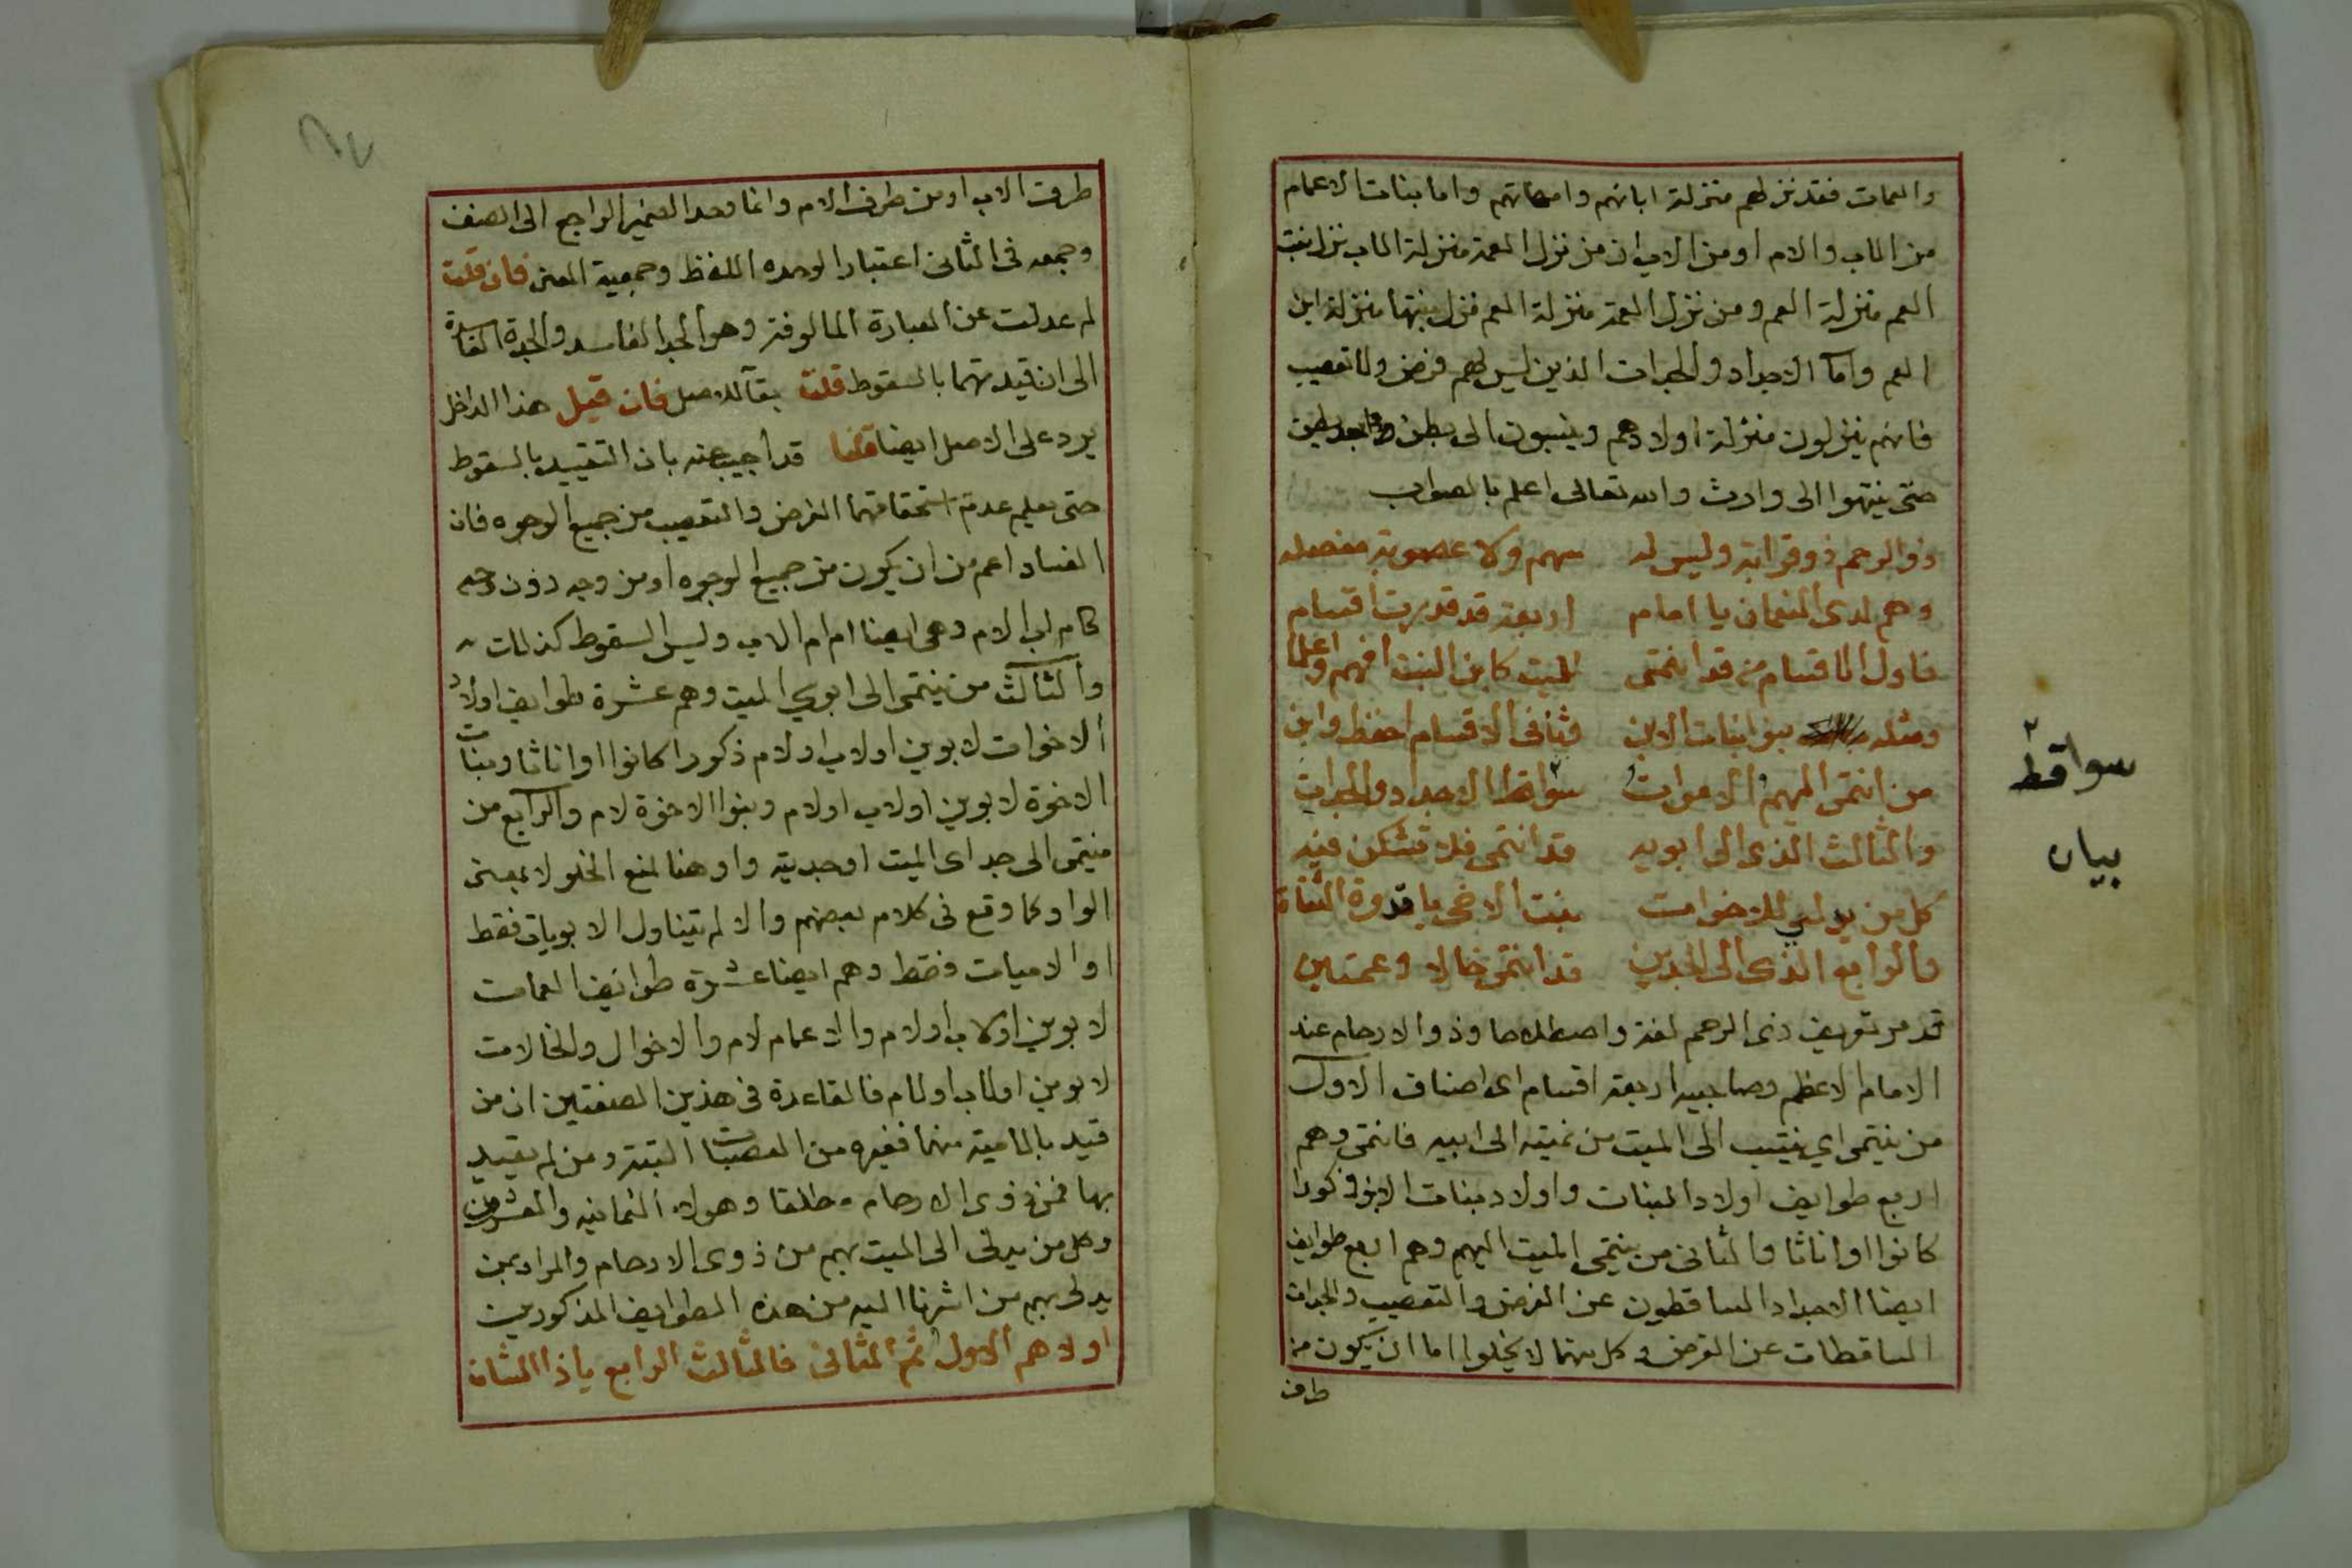 والعمات فقد نزلهم منزلة ابائهم وامهاتهم واما بنات الاعمام
من الاب والام او من الاب ان من نزل العمة منزلة الاب نزل بنت
العم منزلة العم ومن نزل العمة منزلة العم نزل بنتها منزلة ابن
العم واما الاجداد والجدات الذين ليس لهم فرض ولا تعصيب
فانهم ينزلون منزلة اولادهم وينسبون الى بطن بعد بطن
حتى ينتهوا الى وارث والله تعالى اعلم بالصواب
ذو الرحم ذو قرابة وليس له سهم ولا عصوبة مفصله
وهم لدى النعمان يا امام اربعة قد قدرت اقسام
فاول الاقسام من قد انتمى للميت كابن البنت افهم واعلما
ومثله بنو بنات الابن فثانى الاقسام احفظ وابن
من انتمى اليهم الاموات سواقط الاجداد والجدات
والثالث الذى الى ابويه قد انتمى فلا تشكن فيه
كل من يدلي للاخوات بنت الاخ يا قدوة الثقاة
والرابع الذى الى الجدين قد انتمى خالا وعمتين
قد مر تعريف ذى الرحم لغة واصطلاحا وذوالارحام عند
الامام الاعظم وصاحبيه اربعة اقسام اى اصناف الاول
من ينتمى اي ينتسب الى الميت من نميته الى ابيه فانتمى وهم
اربع طوايف اولاد البنات واولاد بنات الابن ذكورا
كانوا او اناثا والثانى من ينتمى الميت اليهم وهم اربع طوايف
ايضا الاجداد الساقطون عن الفرض والتعصيب والجدات
الساقطات عن الفرض وكل منهما لا يخلوا اما ان يكون من
طرف
سواقط ٢
بيان
طرف الاب او من طرف الام وانما وحد الضمير الراجع الى الصنف
وجمعه فى الثانى اعتبارا لوحدة اللفظ وجمعية المعنى فان قلت
لم عدلت عن العبارة المالوفة وهو الجد الفاسد والجدة الفاسدة
الى ان قيدتهما بالسقوط قلت بقآ للاصل فان قيل هذا الداخل
يرد على الاصل ايضا قلنا قد اجيب عنه بان التقييد بالسقوط
حتى يعلم عدم استحقاقهما الفرض والتعصيب من جميع الوجوه فان
الفساد اعم من ان يكون من جميع الوجوه او من وجه دون وجه
كام اب الام وهى ايضا ام ام الاب وليس السقوط كذلك
والثالث من ينتمى الى ابوي الميت وهم عشرة طوايف اولاد
الاخوات لابوين او لاب او لام ذكورا كانوا او اناثا وبنات
الاخوة لابوين او لاب او لام وبنوا الاخوة لام والرابع من
ينتمى الى جداى الميت او جديته واو هنا لمنع الخلو لا بمعنى
الواو كما وقع فى كلام بعضهم والا لم يتناول الابويات فقط
او الاميات فقط وهم ايضا عشرة طوايف العمات
لابوين او لاب او لام والاعمام لام والاخوال والخالات
لابوين او لاب او لام فالقاعدة فى هذين الصنفين ان من
قيد بالامية منهما فغيره من العصبات البتة ومن لم يقيد
بها فمن ذوى الارحام مطلقا وهولاء الثمانية والعشرون
وكل من يدلى الى الميت بهم من ذوى الارحام والمراد بمن
يدلى بهم من اشرنا اليه من هذه الطوايف المذكورين
اولاهم الاول ثم الثانى فالثالث الرابع يا ذا الشان